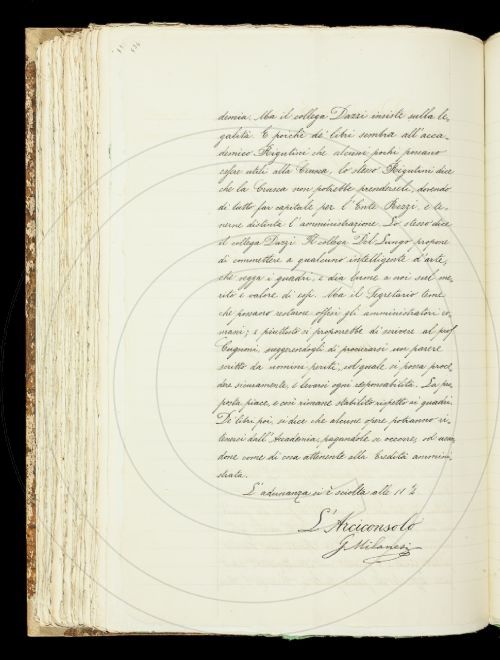 demia. Ma il collega Dazzi insiste sulla le=
galità. E poichè de' libri sembra all'acca=
demico Rigutini che alcuni pochi possano
esser utili alla Crusca, lo stesso Rigutini dice
che la Crusca non potrebbe prenderseli, dovendo
di tutto far capitale per l'Ente Rezzi, e te=
nerne distinta l'amministrazione. Lo stesso dice
il collega Dazzi. Il collega Del Lungo propone
di commettere a qualcuno intelligente d'arte,
che vegga i quadri, e dia lume a noi sul me=
rito e valore di essi. Ma il Segretario teme
che possano restarne offesi gli amministratori ro=
mani; e piuttosto si proporrebbe di scrivere al prof.
Cugnoni, suggerendogli di procurarsi un parere
scritto da uomini periti, col quale si possa proce=
dere sicuramente, e levarsi ogni responsabilità. La pro=
posta piace, e così rimane stabilito rispetto ai quadri.
De' libri poi, si dice che alcune opere potranno ri=
tenersi dall'Accademia, pagandole se occorre, ed usan=
done come di cosa attenente alla Eredità ammini=
strata.
L'adunanza si è sciolta alle 11 ½
L'Arciconsolo
G. Milanesi